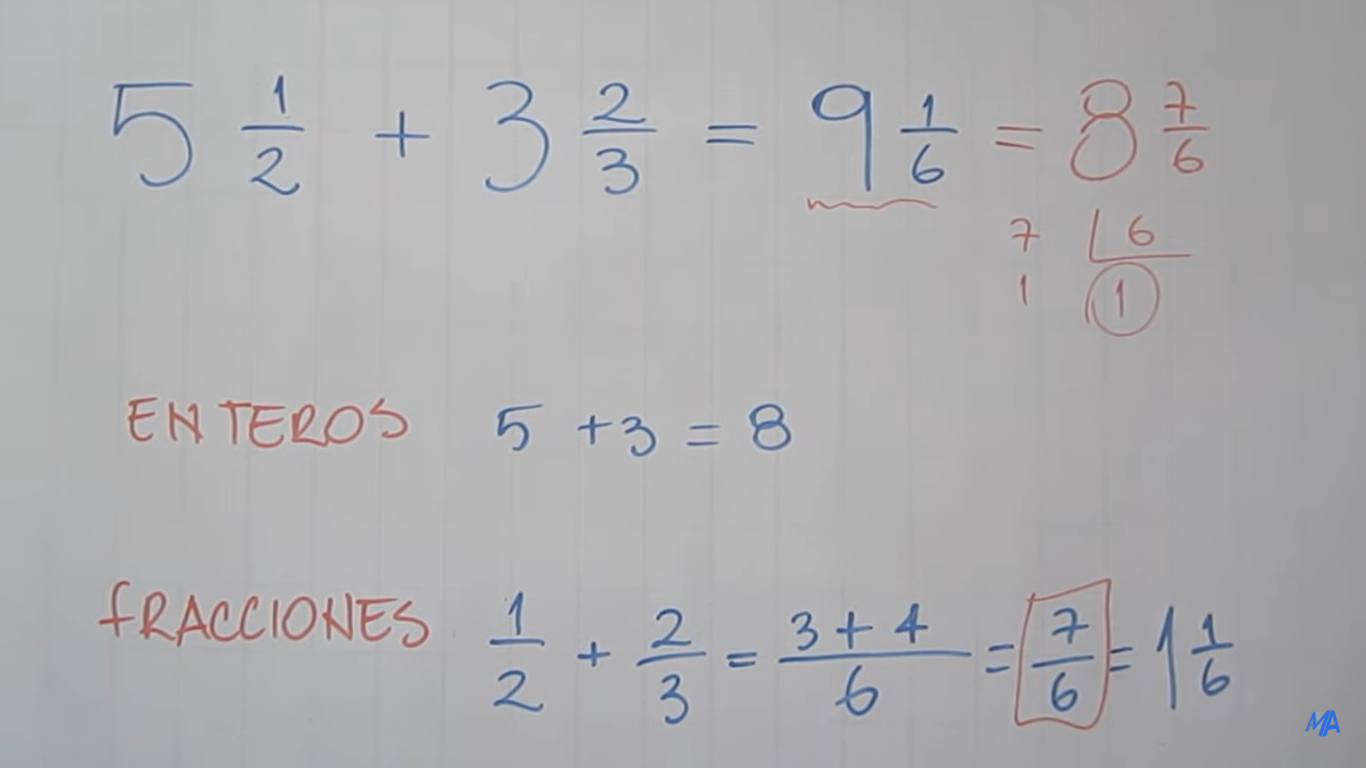 5 1/2 + 3 2/3 = 9 1/6 = 8 7/6
7 6
1 1
ENTEROS 5 + 3 = 8
fRACCIONES 1/2 + 2/3 = 3 + 4/6 = 7/6 = 1 1/6
MA